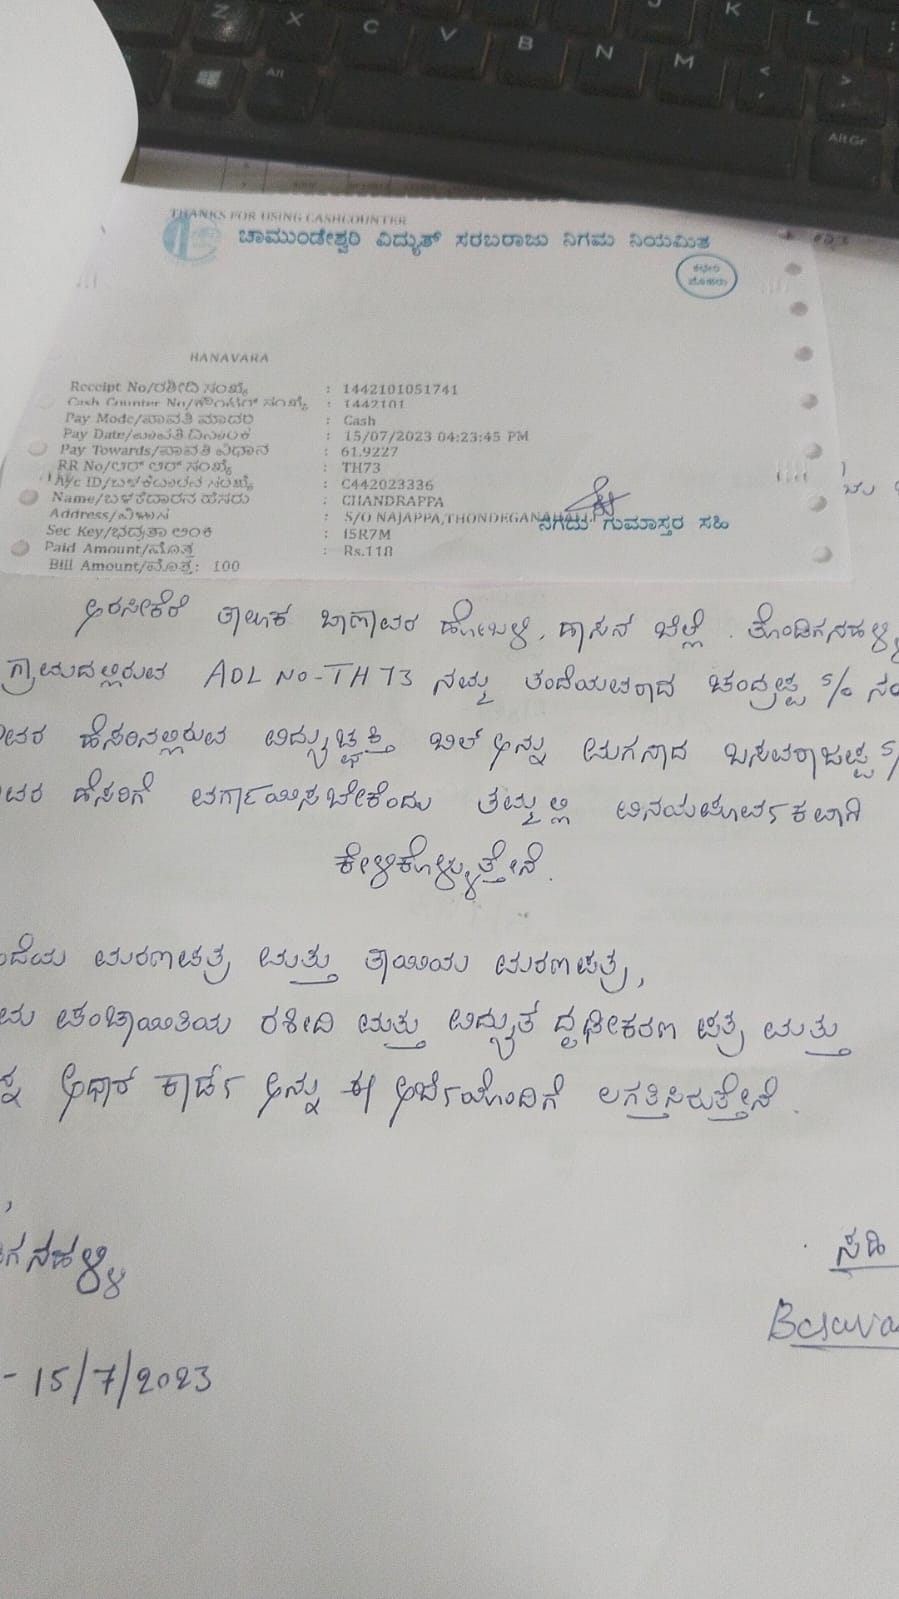 THANKS FOR USING CASHCOUNTER
ಚಾಮುಂಡೇಶ್ವರಿ ವಿದ್ಯುತ್ ಸರಬರಾಜು ನಿಗಮ ನಿಯಮಿತ
ಕಛೇರಿ
ಮೊಹರು
HANAVARA
Receipt No/ರಶೀದಿ ಸಂಖ್ಯೆ : 1442101051741
Cash Counter No/ಕೌಂಟರ್ ಸಂಖ್ಯೆ : 1442101
Pay Mode/ಪಾವತಿ ಮಾದರಿ : Cash
Pay Date/ಪಾವತಿ ದಿನಾಂಕ : 15/07/2023 04:23:45 PM
Pay Towards/ಪಾವತಿ ವಿಧಾನ : 61.9227
RR No/ಆರ್ ಆರ್ ಸಂಖ್ಯೆ : TH73
A/c ID/ಬಳಕೆದಾರನ ಸಂಖ್ಯೆ : C442023336
Name/ಬಳಕೆದಾರನ ಹೆಸರು : CHANDRAPPA
Address/ವಿಳಾಸ : S/O NAJAPPA,THONDEGANAHALLI
ನಗದು ಗುಮಾಸ್ತರ ಸಹಿ
Sec Key/ಭದ್ರತಾ ಅಂಕಿ : I5R7M
Paid Amount/ಮೊತ್ತ : Rs.110
Bill Amount/ಮೊತ್ತ: 100
ಅರಸೀಕೆರೆ ತಾಲೂಕ ಬಾಣಾವರ ಹೋಬಳಿ, ಹಾಸನ ಜಿಲ್ಲೆ. ತೊಂಡಿಗನಹಳ್ಳಿ
ಗ್ರಾಮದಲ್ಲಿರುವ ADL NO-TH 73 ನಮ್ಮ ತಂದೆಯವರಾದ ಚಂದ್ರಪ್ಪ S/o
ಹೆಸರಿನಲ್ಲಿರುವ ವಿದ್ಯುಚ್ಛಕ್ತಿ ಬಿಲ್ ಅನ್ನು ಮಗನಾದ ಬಸವರಾಜಪ್ಪ
ಹೆಸರಿಗೆ ವರ್ಗಾಯಿಸಬೇಕೆಂದು ತಮ್ಮಲ್ಲಿ ವಿನಯಪೂರ್ವಕವಾಗಿ
ಕೇಳಿಕೊಳ್ಳುತ್ತೇನೆ.
ಮರಣಪತ್ರ ಮತ್ತು ತಾಯಿಯ ಮರಣಪತ್ರ,
ಪಂಚಾಯಿತಿಯ ರಶೀದಿ ಮತ್ತು ವಿದ್ಯುತ ದೃಢೀಕರಣ ಪತ್ರ ಮತ್ತು
ಅಧಾರ್ ಕಾರ್ಡ್ ಅನ್ನು ಈ ಅರ್ಜಿಯೊಂದಿಗೆ ಲಗತ್ತಿಸಿರುತ್ತೇನೆ.
ಗನಹಳ್ಳಿ
ಸಹಿ
Basava
- 15/7/2023